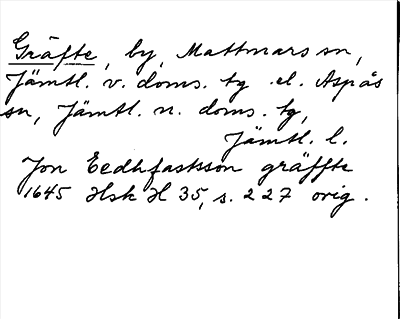 Gräfte, by, Mattmars sn,
Jämtl. v. doms. tg el. Aspås
sn, Jämtl. n. doms. tg,
Jämtl. l.
Jon Eedhfastsson gräffte
1645 Hsk H 35, s. 227 orig.